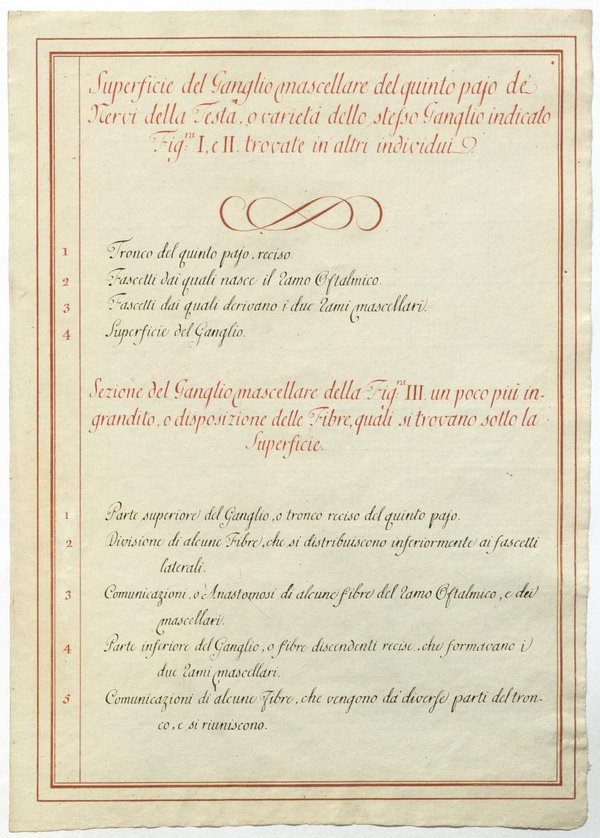 Superficie del Ganglio mascellare del quinto pajo de'
Nervi della Testa, o varietá dello stesso Ganglio indicato
Fig.ra I, e II. trovate in altri individui.
1 Tronco del quinto pajo, reciso.
2 Fascetti dai quali nasce il Ramo Oftalmico.
3 Fascetti dai quali derivano i due Rami mascellari.
4 Superficie del Ganglio.
Sezione del Ganglio mascellare della Fig.ra III. un poco piui in-
grandito, o disposizione delle Fibre, quali si trovano sotto la
Superficie.
1 Parte superiore del Ganglio, o tronco reciso del quinto pajo.
2 Divisione di alcune Fibre, che si distribuiscono inferiormente ai fascetti
laterali.
3 Comunicazioni, o Anastomosi di alcune fibre del Ramo Oftalmico, e dei
mascellari.
4 Parte inferiore del Ganglio, o fibre discendenti recise, che formavano i
due Rami mascellari.
5 Comunicazioni di alcune Fibre, che vengono da diverse parti del tron-
co, e si riuniscono.